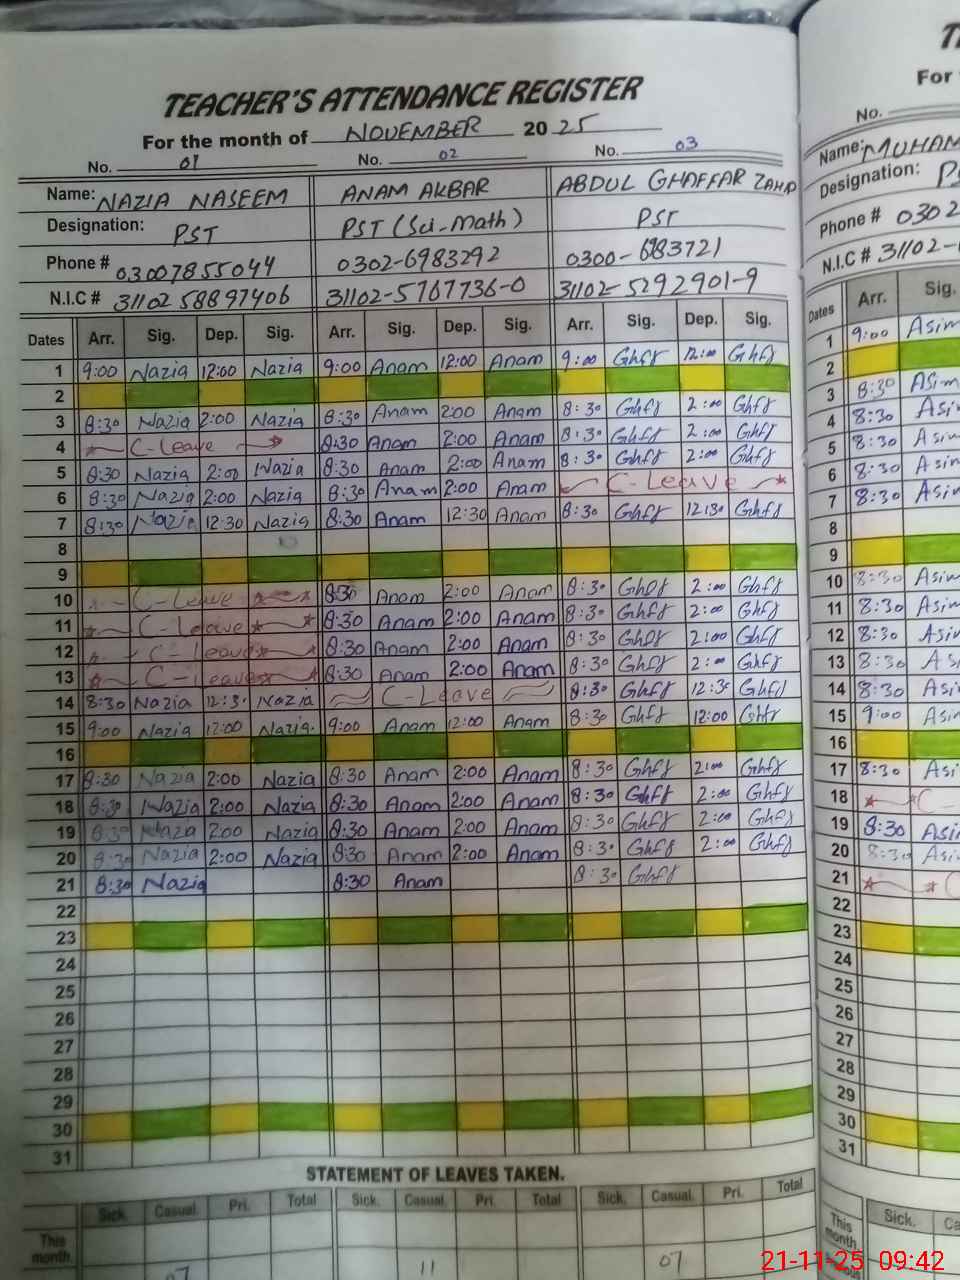 TEACHER'S ATTENDANCE REGISTER
For the month of NOVEMBER 2025
No. 01 No. 02 No. 03
Name: NAZIA NASEEM ANAM AKBAR ABDUL GHAFFAR ZAHD
Designation: PST PST (Sci-Math) PST
Phone # 03007855044 0302-6983292 0300-6983721
N.I.C # 31102 58897406 31102-5767736-0 31102-5292901-9
Dates Arr. Sig. Dep. Sig. Arr. Sig. Dep. Sig. Arr. Sig. Dep. Sig.
1 9:00 Nazia 12:00 Nazia 9:00 Anam 12:00 Anam 9:00 Ghff 12:00 Ghff
2
3 8:30 Nazia 2:00 Nazia 8:30 Anam 2:00 Anam 8:30 Ghff 2:00 Ghff
4 C-Leave 8:30 Anam 2:00 Anam 8:30 Ghff 2:00 Ghff
5 8:30 Nazia 2:00 Nazia 8:30 Anam 2:00 Anam 8:30 Ghff 2:00 Ghff
6 8:30 Nazia 2:00 Nazia 8:30 Anam 2:00 Anam C-Leave
7 8:30 Nazia 12:30 Nazia 8:30 Anam 12:30 Anam 8:30 Ghff 12:30 Ghff
8
9
10 C-Leave 8:30 Anam 2:00 Anam 8:30 Ghff 2:00 Ghff
11 C-Leave 8:30 Anam 2:00 Anam 8:30 Ghff 2:00 Ghff
12 C-Leave 8:30 Anam 2:00 Anam 8:30 Ghff 2:00 Ghff
13 C-Leave 8:30 Anam 2:00 Anam 8:30 Ghff 2:00 Ghff
14 8:30 Nazia 12:30 Nazia C-Leave 8:30 Ghff 12:30 Ghff
15 9:00 Nazia 12:00 Nazia. 9:00 Anam 12:00 Anam 8:30 Ghff 12:00 Ghff
16
17 8:30 Nazia 2:00 Nazia 8:30 Anam 2:00 Anam 8:30 Ghff 2:00 Ghff
18 8:30 Nazia 2:00 Nazia 8:30 Anam 2:00 Anam 8:30 Ghff 2:00 Ghff
19 8:30 Nazia 2:00 Nazia 8:30 Anam 2:00 Anam 8:30 Ghff 2:00 Ghff
20 8:30 Nazia 2:00 Nazia 8:30 Anam 2:00 Anam 8:30 Ghff 2:00 Ghff
21 8:30 Nazia 8:30 Anam 8:30 Ghff
22
23
24
25
26
27
28
29
30
31
STATEMENT OF LEAVES TAKEN.
Sick. Casual. Pri. Total Sick. Casual. Pri. Total Sick. Casual. Pri. Total
This month. 07 11 07
For
No.
Name: MUHAM
Designation: PS
Phone # 0302
N.I.C # 31102-
Dates Arr. Sig.
1 9:00 Asim
2
3 8:30 Asim
4 8:30 Asi
5 8:30 Asim
6 8:30 Asi
7 8:30 Asi
8
9
10 8:30 Asim
11 8:30 Asim
12 8:30 Asi
13 8:30 As
14 8:30 Asi
15 9:00 Asi
16
17 8:30 Asi
18 C-
19 8:30 Asi
20 8:30 Asi
21
22
23
24
25
26
27
28
29
30
31
Sick. Ca
This month
21-11-25 09:42